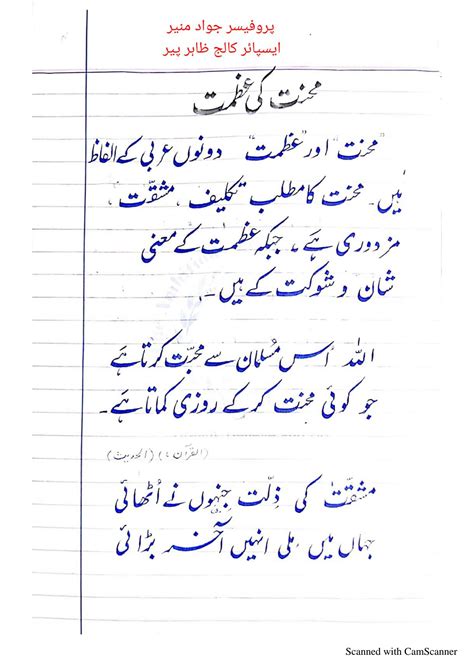 پروفیسر جواد منیر
ایسپائر کالج ظاہر پیر
محنت کی عظمت
"محنت" اور "عظمت" دونوں عربی کے الفاظ
ہیں۔ محنت کا مطلب تکلیف، مشقّت،
مزدوری ہے۔ جبکہ عظمت کے معنی
شان و شوکت کے ہیں۔
اللہ اُس مُسلمان سے محبّت کرتا ہے
جو کوئی محنت کر کے روزی کماتا ہے۔
(القرآن) (الحدیث)
مشقّت کی ذِلّت جِنہوں نے اُٹھائی
جہاں میں مِلی انہیں آخر بڑائی
Scanned with CamScanner